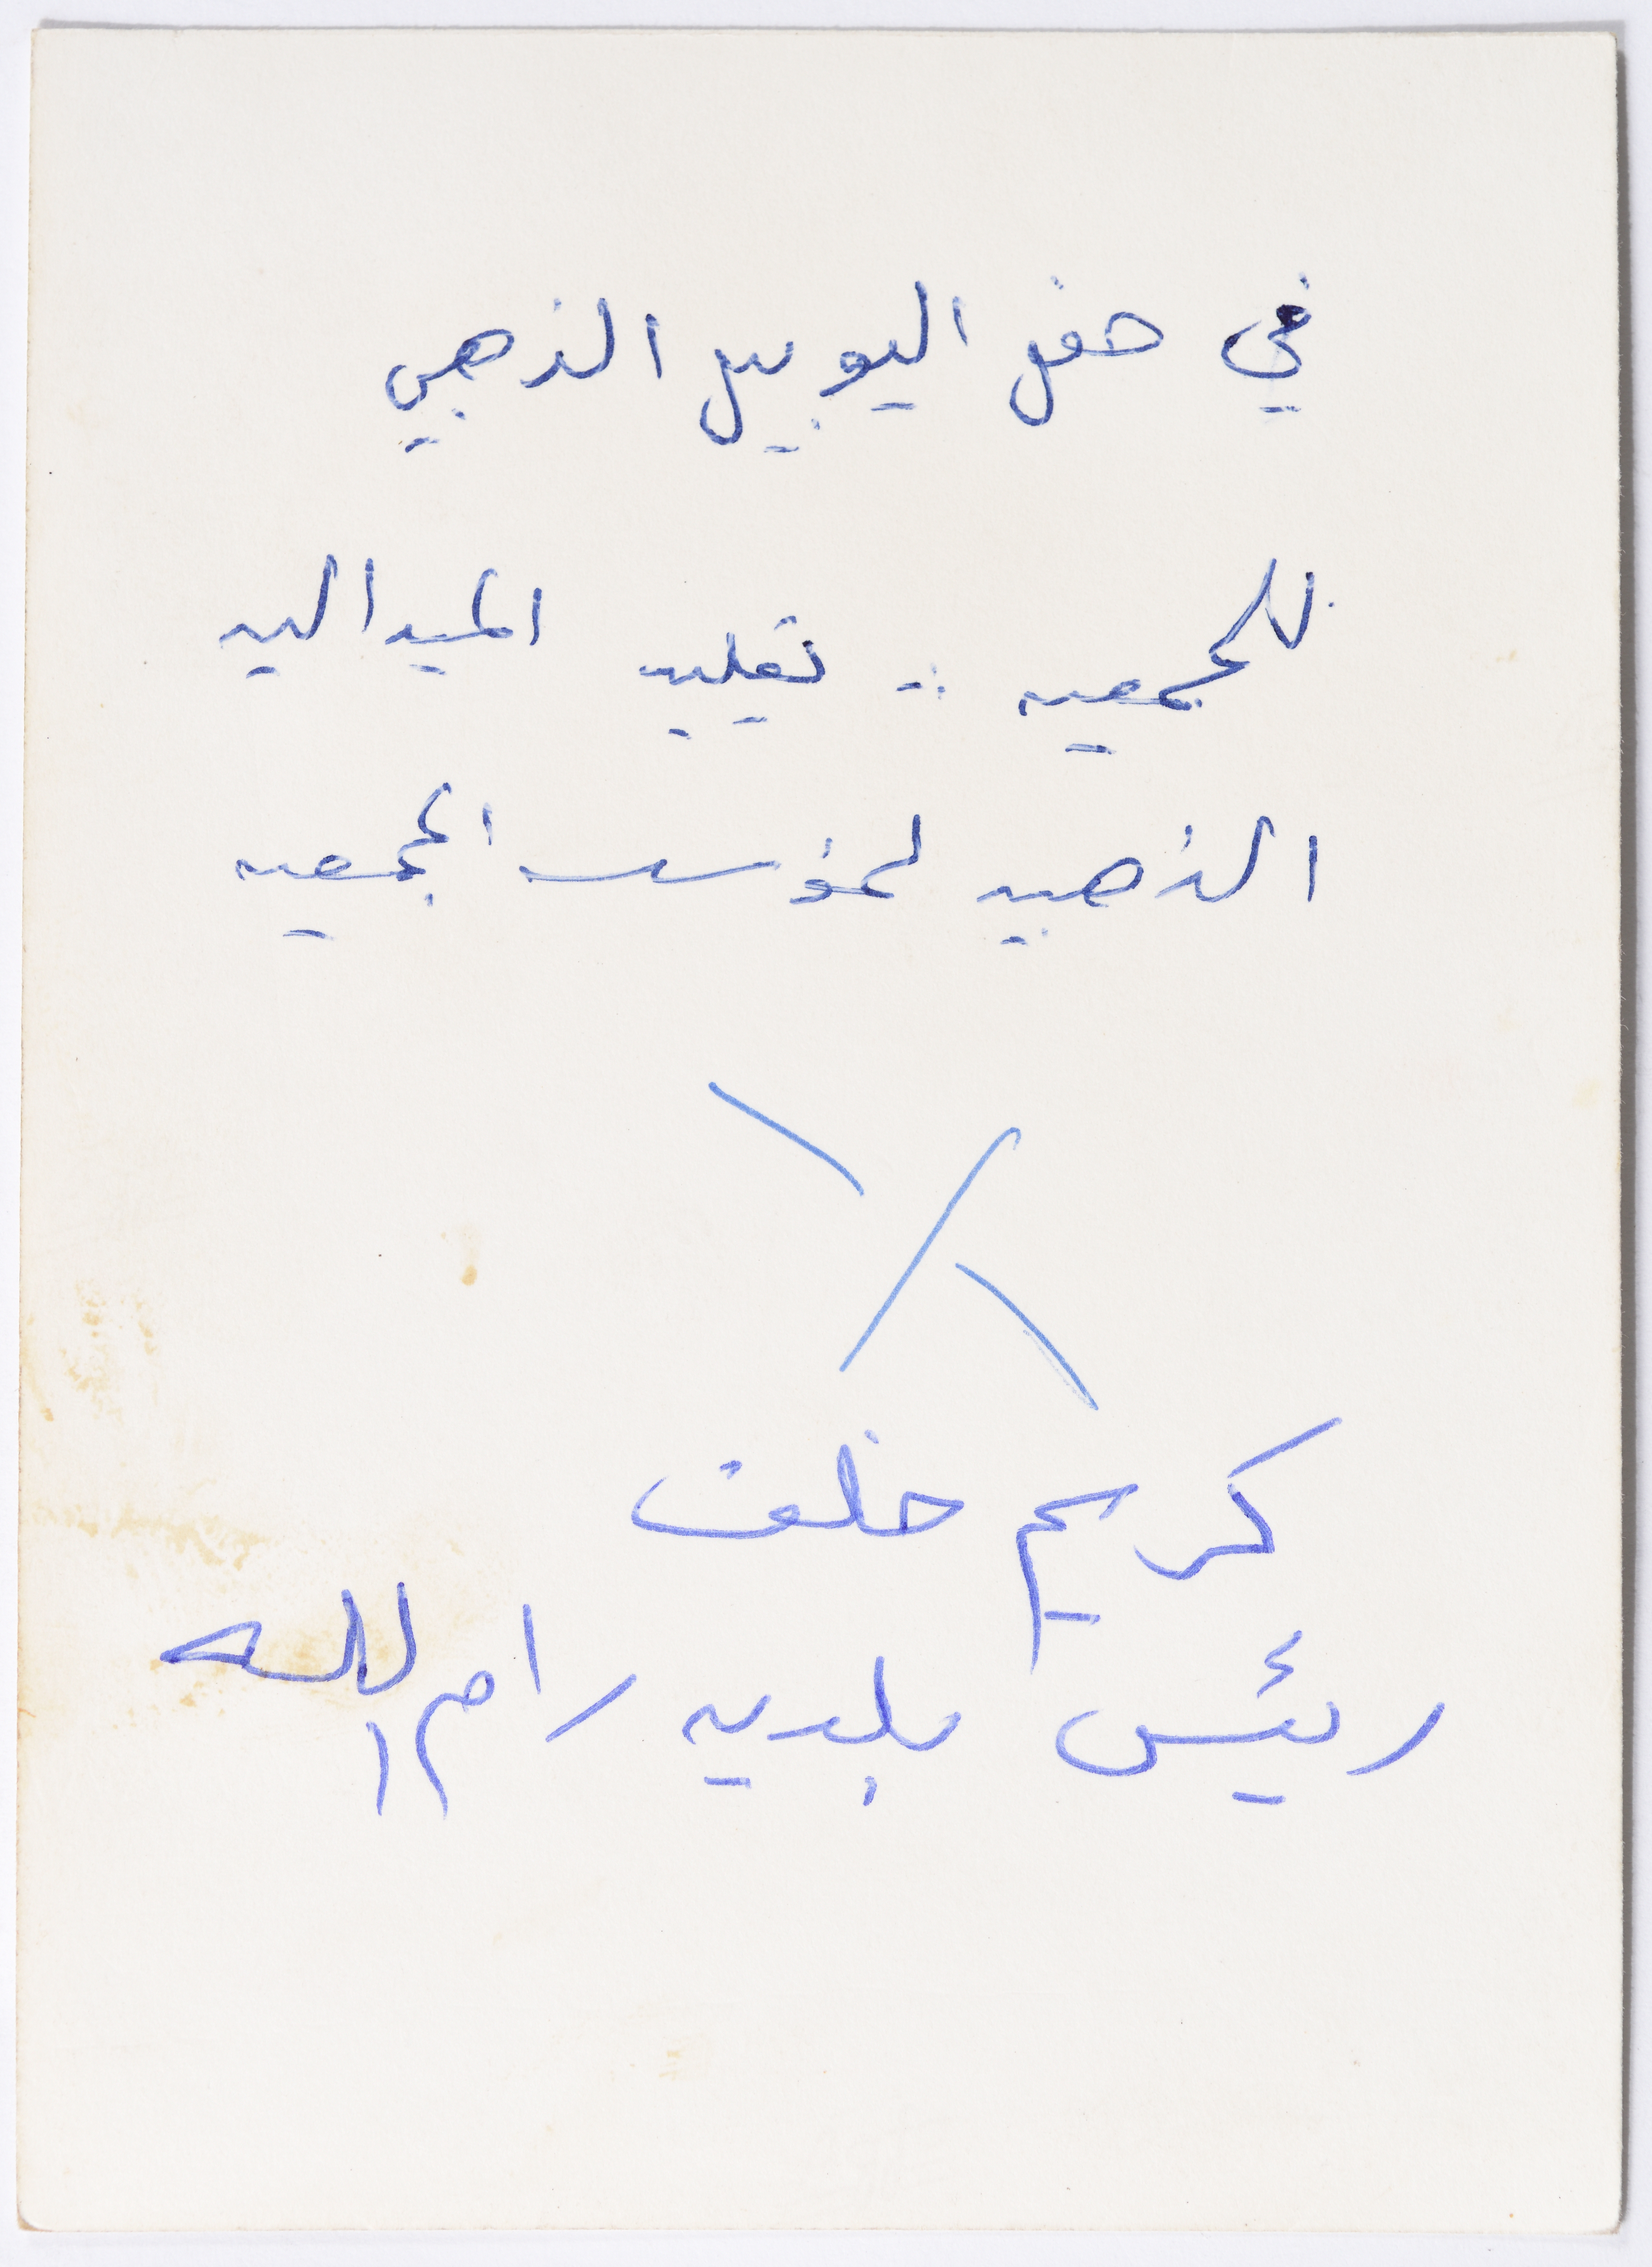 في حفل اليوبيل الذهبي
للجمعيه .. تقليد الميداليه
الذهبيه لمؤسس الجمعيه
كريم خلف
رئيس بلديه رام الله